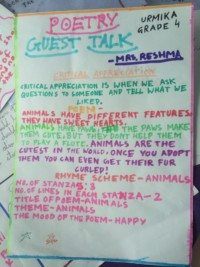 POETRY
URMIKA
GRADE 4
GUEST TALK
- MRS. RESHMA
CRITICAL APPRECIATION
CRITICAL APPRECIATION IS WHEN WE ASK
QUESTIONS TO SOMEONE AND TELL WHAT WE
LIKED.
POEM-
ANIMALS HAVE DIFFERENT FEATURES,
THEY HAVE SWEET HEARTS.
ANIMALS HAVE PAWS, THE PAWS MAKE
THEM CUTE, BUT THEY DONT HELP THEM
TO PLAY A FLUTE. ANIMALS ARE THE
CUTEST IN THE WORLD, ONCE YOU ADOPT
THEM YOU CAN EVEN GET THEIR FUR
CURLED!
RHYME SCHEME-ANIMALS
NO. OF STANZAS: 3
NO. OF LINES IN EACH STANZA-2
TITLE OF POEM-ANIMALS
THEME-ANIMALS
THE MOOD OF THE POEM-HAPPY